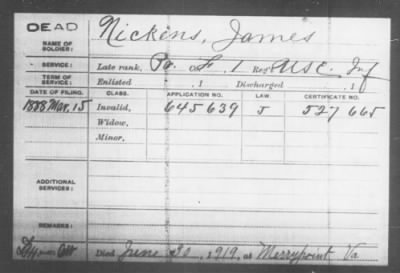 DEAD
NAME OF SOLDIER: Nickens, James
SERVICE: Late rank, Pvt. Co. F, 1 Reg't U.S.C. Inf
TERM OF SERVICE: Enlisted , 1 Discharged , 1
DATE OF FILING. CLASS. APPLICATION NO. LAW. CERTIFICATE NO.
1888 Mar. 15 Invalid, 645639 J 527665
Widow,
Minor,
ADDITIONAL SERVICES:
REMARKS:
Died June 30, 1919, at Merrypoint Va